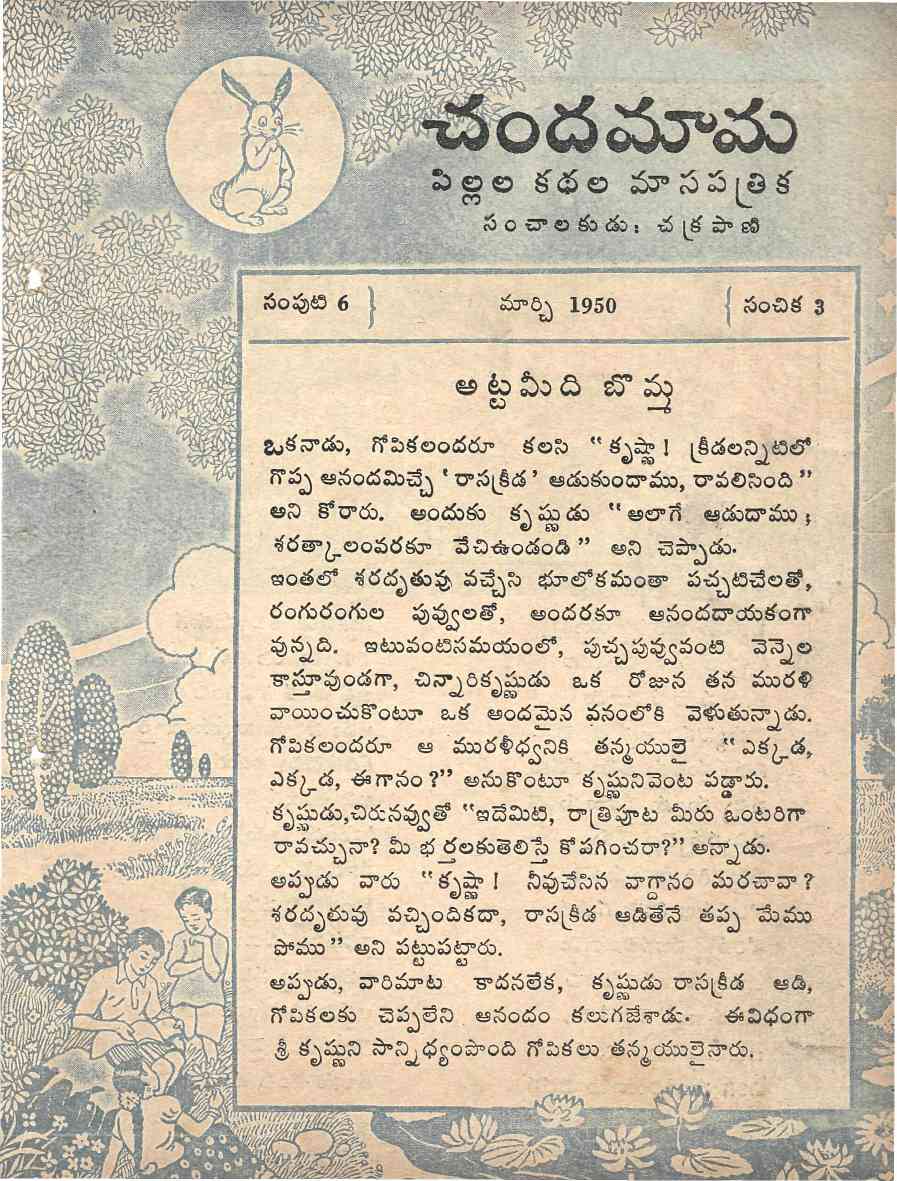 చందమామ
పిల్లల కథల మాసపత్రిక
సంచాలకుడు: చక్రపాణి
సంపుటి 6 } మార్చి 1950 { సంచిక 3
అట్టమీది బొమ్మ
ఒకనాడు, గోపికలందరూ కలసి “కృష్ణా! క్రీడలన్నిటిలో
గొప్ప ఆనందమిచ్చే ‘రాసక్రీడ’ ఆడుకుందాము, రావలిసింది”
అని కోరారు. అందుకు కృష్ణుడు “అలాగే ఆడుదాము;
శరత్కాలంవరకూ వేచిఉండండి” అని చెప్పాడు.
ఇంతలో శరదృతువు వచ్చేసి భూలోకమంతా పచ్చటిచేలతో,
రంగురంగుల పువ్వులతో, అందరకూ ఆనందదాయకంగా
వున్నది. ఇటువంటిసమయంలో, పుచ్చపువ్వువంటి వెన్నెల
కాస్తూవుండగా, చిన్నారికృష్ణుడు ఒక రోజున తన మురళి
వాయించుకొంటూ ఒక అందమైన వనంలోకి వెళుతున్నాడు.
గోపికలందరూ ఆ మురళీధ్వనికి తన్మయులై “ఎక్కడ,
ఎక్కడ, ఈగానం?” అనుకొంటూ కృష్ణునివెంట పడ్డారు.
కృష్ణుడు,చిరునవ్వుతో “ఇదేమిటి, రాత్రిపూట మీరు ఒంటరిగా
రావచ్చునా? మీ భర్తలకుతెలిస్తే కోపగించరా?” అన్నాడు.
అప్పుడు వారు “కృష్ణా! నీవుచేసిన వాగ్దానం మరచావా?
శరదృతువు వచ్చిందికదా, రాసక్రీడ ఆడితేనే తప్ప మేము
పోము” అని పట్టుపట్టారు.
అప్పుడు, వారిమాట కాదనలేక, కృష్ణుడు రాసక్రీడ ఆడి,
గోపికలకు చెప్పలేని ఆనందం కలుగజేశాడు. ఈవిధంగా
శ్రీ కృష్ణుని సాన్నిధ్యంపొంది గోపికలు తన్మయులైనారు.